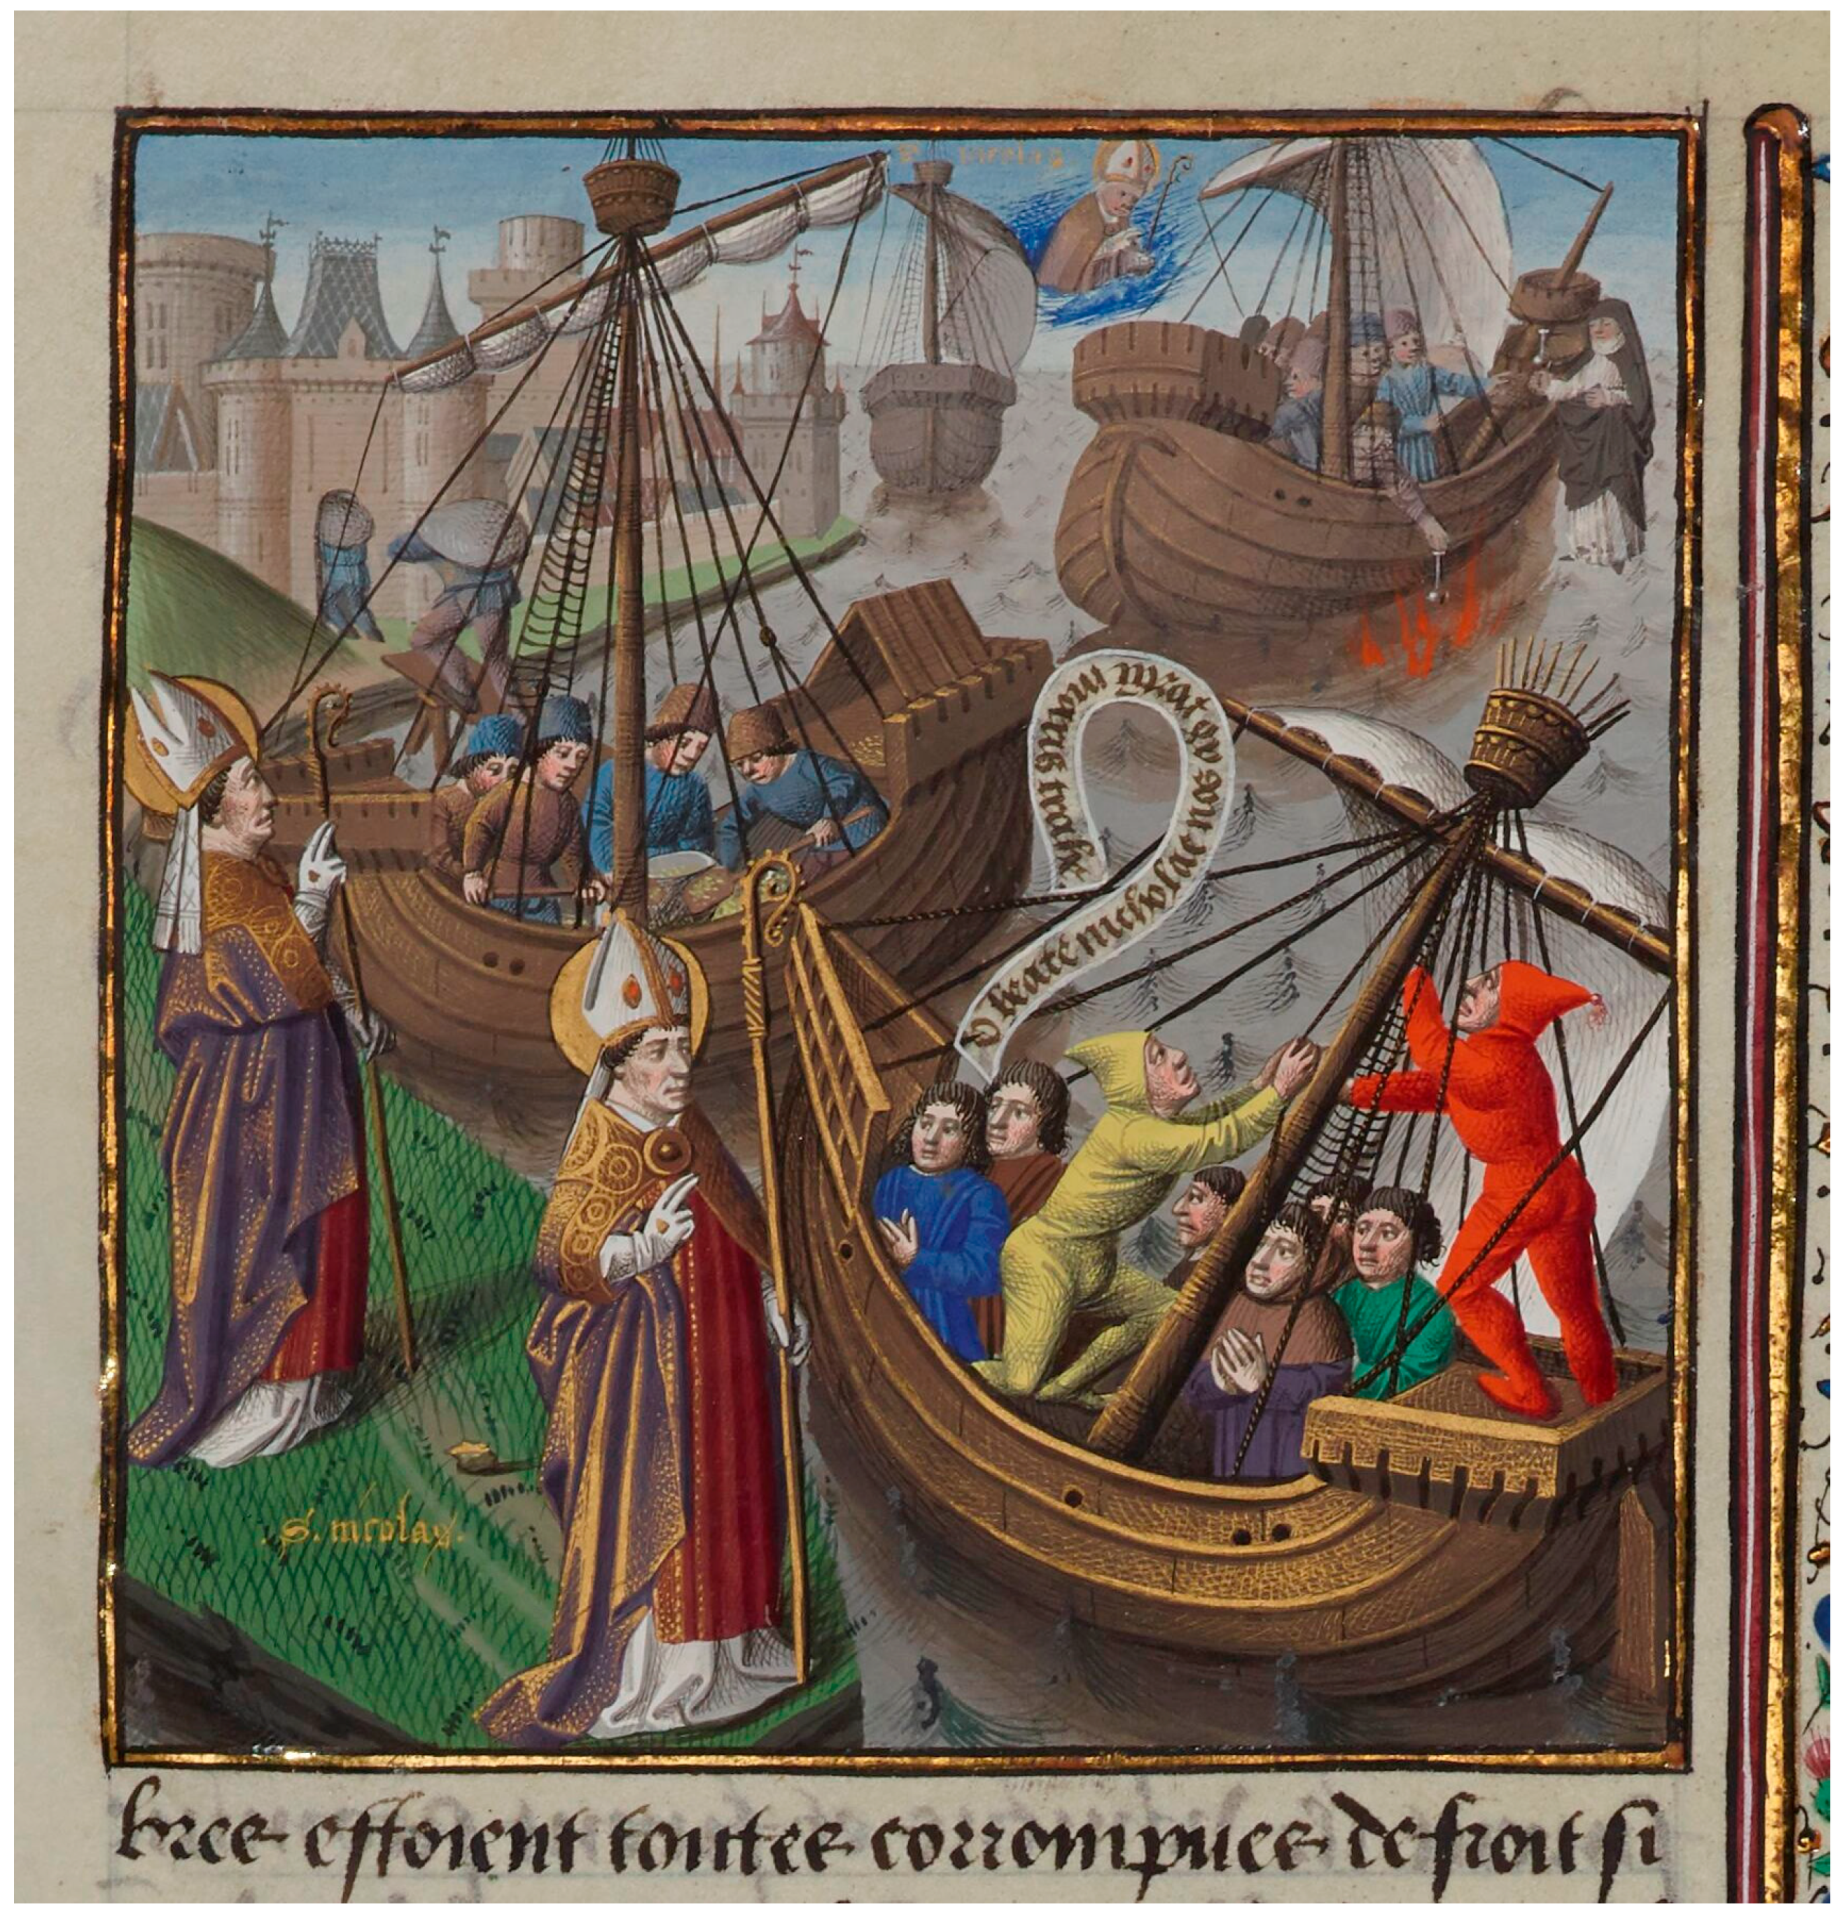 S. nicolay
O beate nicholae nos ad maris trahe
.S. nicolay.
bres estoient toutes corrompues de froit si